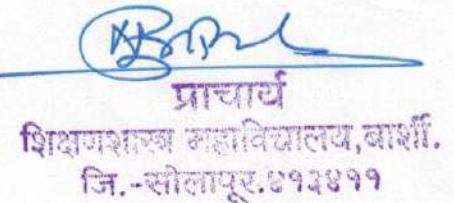 प्राचार्य
शिक्षणशास्त्र महाविद्यालय,बार्शी.
जि.-सोलापूर.४१३४११